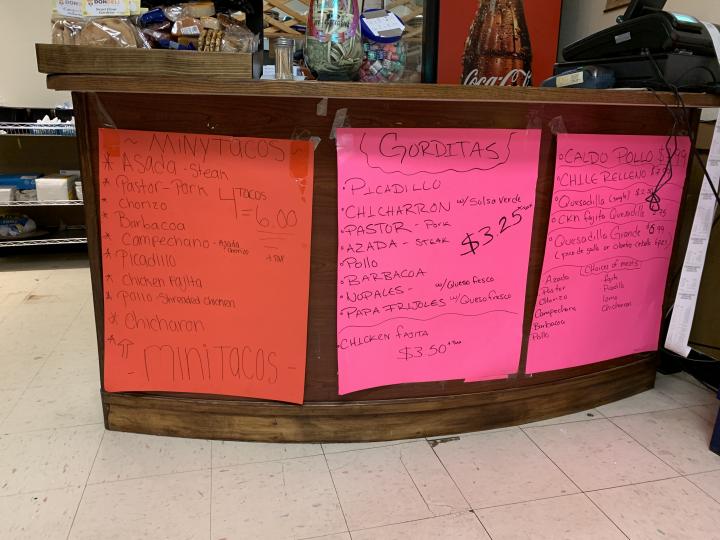 DONDELI
Coca-Cola
~ MINYTACOS
* Asada - Steak
* Pastor - Pork
* chorizo
* Barbacoa
* Campechano - Azada
chorizo
* Picadillo
* Chicken Fajita
* Pollo - Shredded chicken
* Chicharon
4 TACOS
= 6.00
+ TAX
- MINITACOS -
GORDITAS
• PICADILLO
• CHICHARRON w/ Salsa Verde
• PASTOR - Pork
• AZADA - STEAK
• Pollo
• BARBACOA
• NOPALES - w/ Queso fresco
• PAPA FRIJOLES w/ Queso fresco
$3.25 + tax
• CHICKEN fAJITA
$3.50 + tax
• CALDO POLLO
• CHILE RELLENO
• Quesadilla (single)
• CKN fajita Quesadilla
• Quesadilla Grande $6.99
Choices of meats
Azada fajita
Pastor Picadillo
Chorizo lomo
Campechana Chicharron
Barbacoa
Pollo